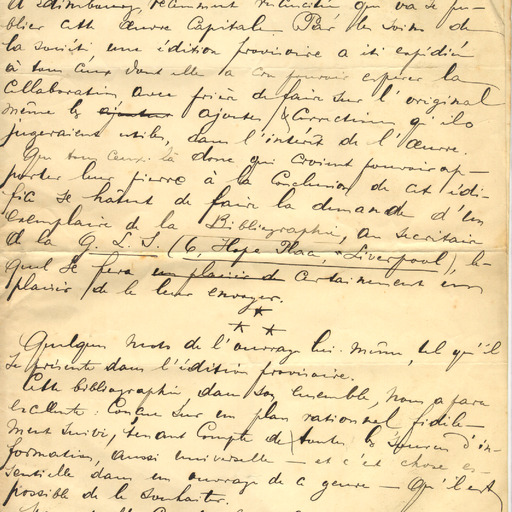 d'Edimbourg, récemment            que va se pu-
blier cette œuvre Capitale. Par les soins de
la société une édition provisoire a été expédiée
à tous ceux dont elle a cru pouvoir espérer la
Collaboration avec prière de faire sur l'original
même les ajoutes & Corrections qu'ils
jugeraient utiles, dans l'intérêt de l'œuvre.
Que tous ceux-là donc qui croient pouvoir ap-
porter leur pierre à la Conclusion de cet édi-
fice se hâtent de faire la demande d'un
exemplaire de la Bibliographie, au secrétaire
de la G. L. S. (6, Hope Place, Liverpool), le-
quel se fera un plaisir de certainement un
plaisir de le leur envoyer.
* * *
Quelques mots de l'ouvrage lui-même, tel qu'il
se présente dans l'édition provisoire.
Cette bibliographie dans son ensemble, nous a paru
excellente : Conçue sur un plan rationnel fidèle-
ment suivi, tenant Compte de toutes les sources d'in-
formation, aussi universelle — et c'est chose es-
sentielle dans un ouvrage de ce genre — qu'il est
possible de le souhaiter.